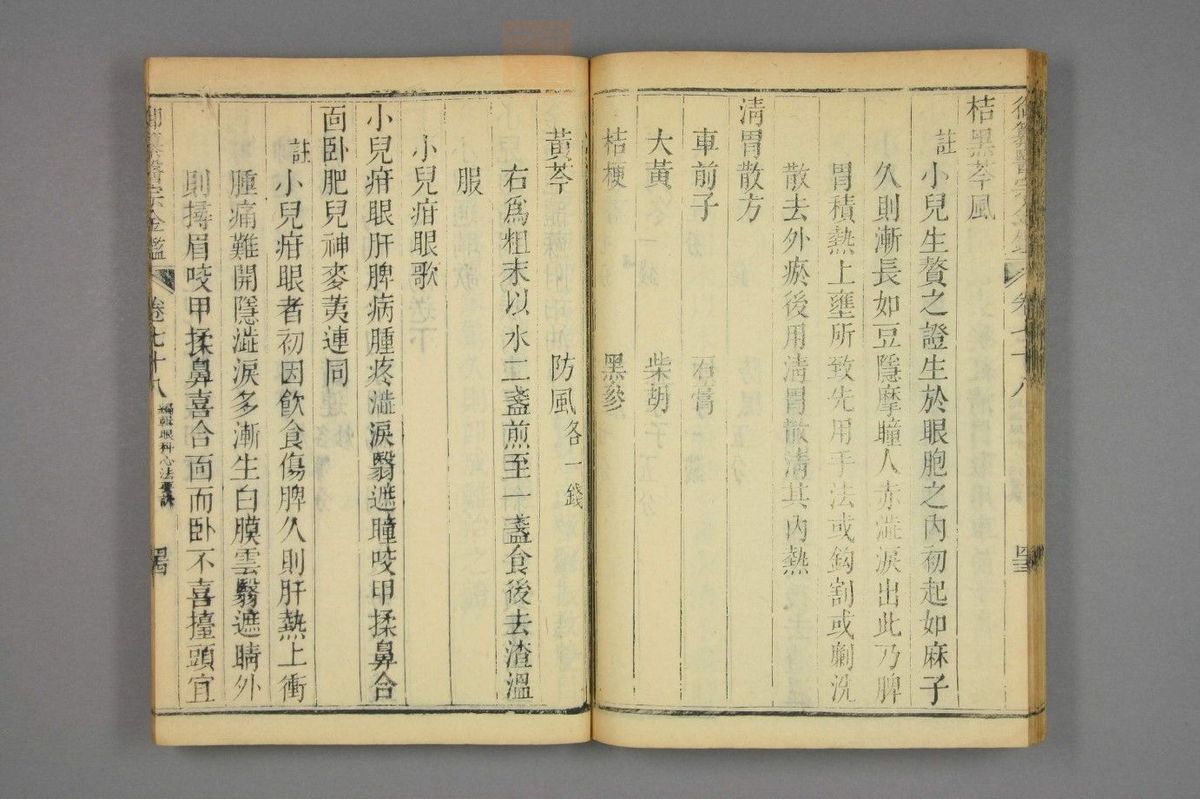 桔黑芩風
註小兒生贅之證生於眼胞之內初起如麻子
久則漸長如豆隱摩瞳人赤澁淚出此乃脾
胃積熱上壅所致先用手法或鈎割或劆洗
散去外瘀後用淸胃散淸其內熱
淸胃散方
車前子 石膏
大黃 柴胡子五分
桔梗 黑參
黃芩 防風各一錢
右爲粗末以水二盞煎至一盞食後去渣溫
服
小兒疳眼歌
小兒疳眼肝脾病腫疼澁淚翳遮瞳咬甲揉鼻合
面卧肥兒神麥荑連同
註小兒疳眼者初因飮食傷脾久則肝熱上衝
腫痛難開隱澁淚多漸生白膜雲翳遮睛外
則撏眉咬甲揉鼻喜合面而卧不喜擡頭宜
御纂醫宗金鑑 卷七十八 編輯眼科心法要訣